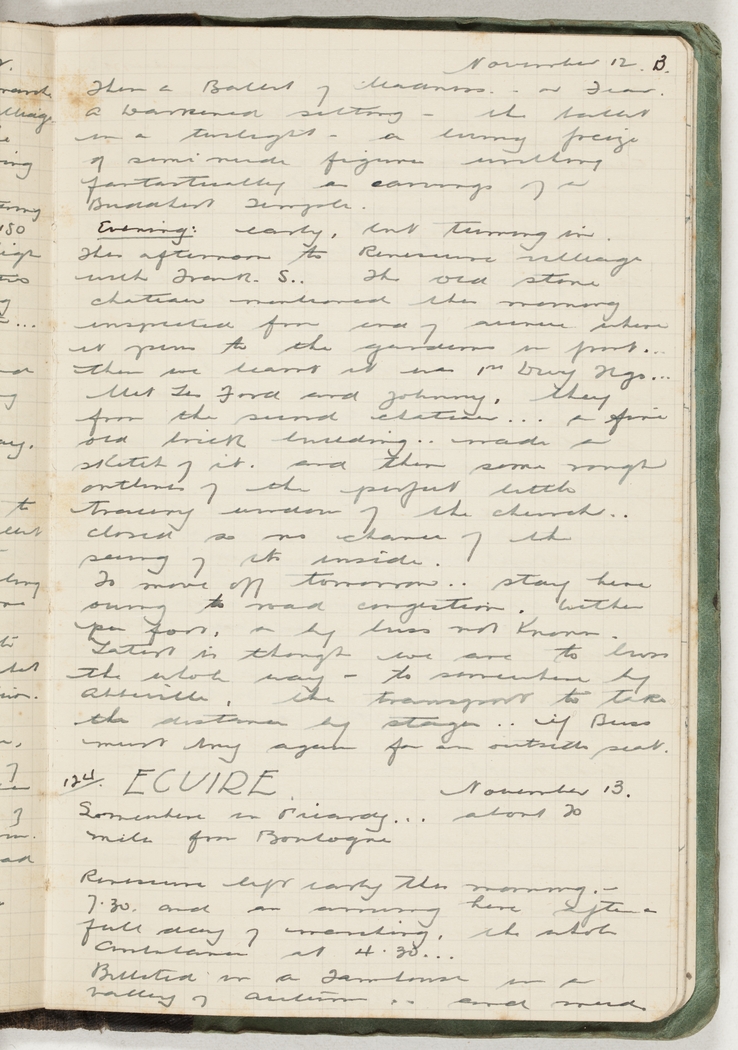 November 12. B.
Then a Ballet of Madness. - or Fear.
a darkened setting - the ballet
in a twilight - a living frieze
of semi nude figures writhing
fantastically as carvings of a
Buddhist Temple.
Evening: early, but turning in.
This afternoon to Renescure village
with Frank. S.. The old stone
chateau mentioned this morning
inspected from end of avenue where
it opens to the gardens in front...
then we learnt it was 1st Divy Hqs...
Met Les Ford and Johnny, they
from the second chateau... a fine
old brick building.. made a
sketch of it. and then some rough
outlines of the perfect little
tracery window of the church..
closed so no chance of the
seeing of its inside.
To move off tomorrow.. stay here
owing to road congestion. Wether
per foot, or by buss not known.
Latest is though we are to buss
the whole way - to somewhere by
Abbeville, the transport to take
the distance by stages.. if Buss
must try again for an outside seat.
124/. ECUIRE November 13.
Somewhere in Picardy... about 20
miles from Boulogne
Renescure left early this morning. -
7.30. and an arriving here after a
full day of marching, the whole
Ambulance at 4.30...
Billeted in a Farmhouse in a
valley of autumn .. and mud